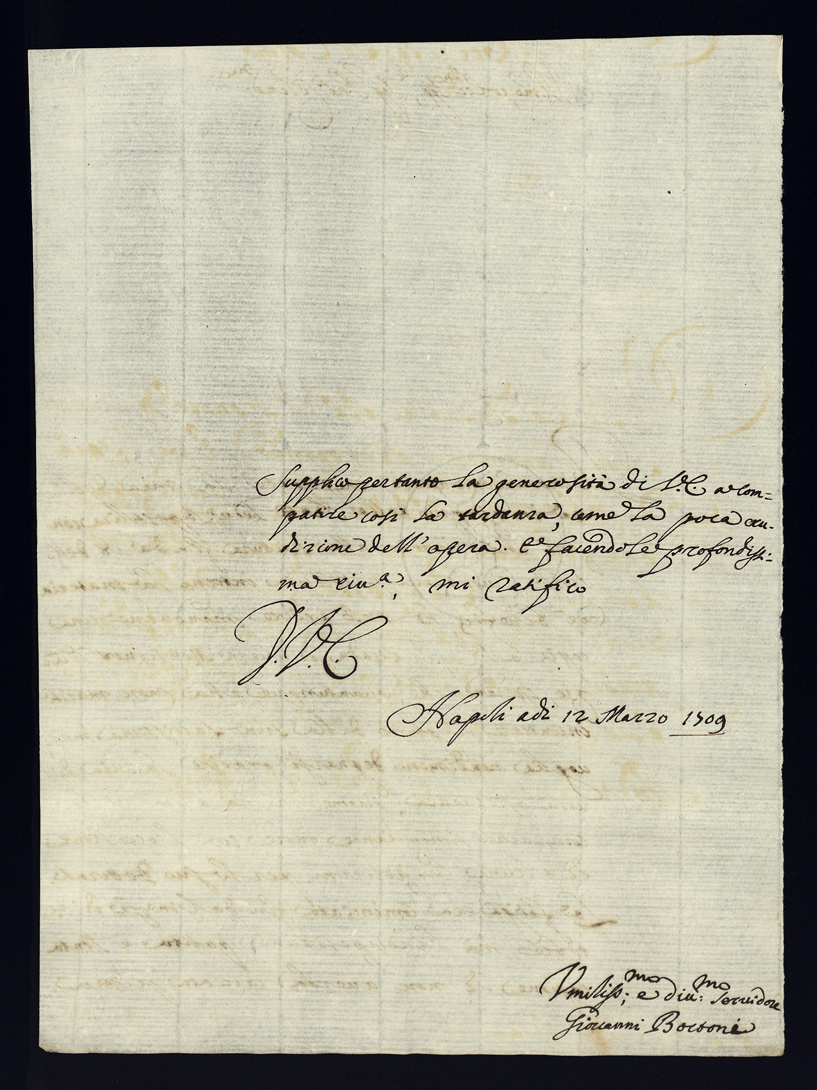 Supplico pertanto la generosità di V.E. a com=
patire così la tardanza, come la poca eru-
dizione dell'opera. E facendole profondiss:-
ma riv.a, mi ratifico
D.V.E.
Napoli adi 12 Marzo 1709
Vmiliss:mo e diu:mo Seruidore
Giovanni